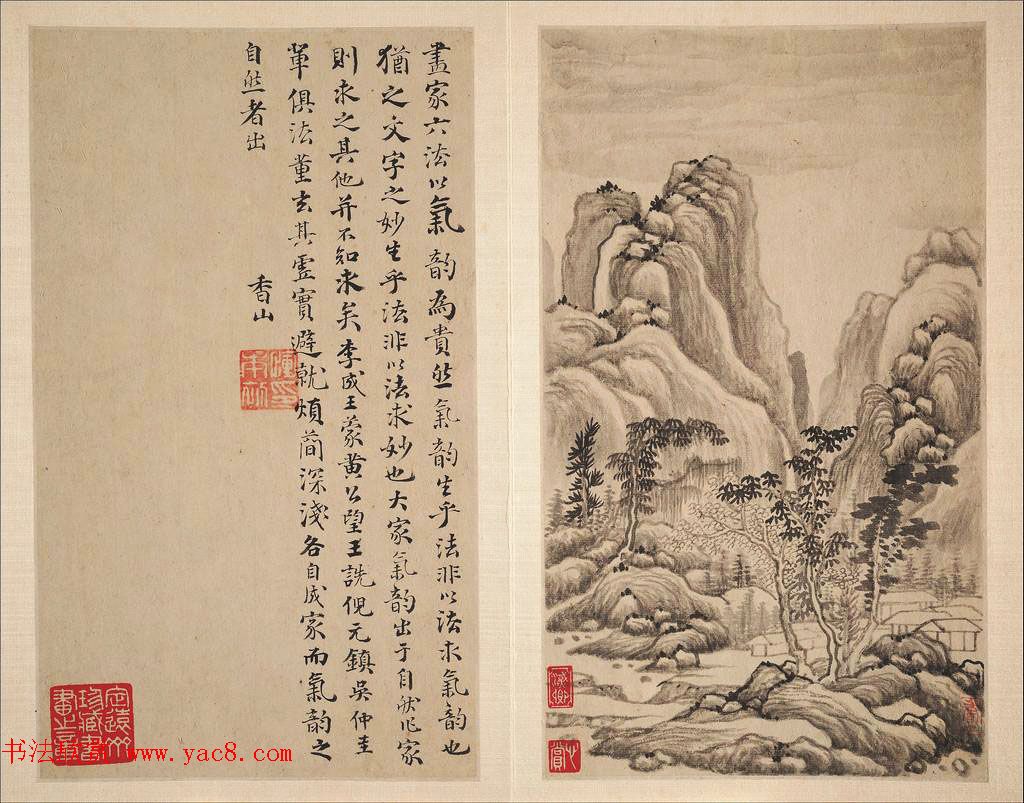 畫家六法以氣韵為貴然氣韵生乎法非以法求氣韵也
猶之文字之妙生乎法非以法求妙也大家氣韵出于自然作家
則求之其他并不知求矣李成王蒙黄公望王詵倪元鎮吳仲圭
軰俱法董玄其虛實避就煩蕳深淺各自成家而氣韵之
自然者出
香山
www.yac8.com